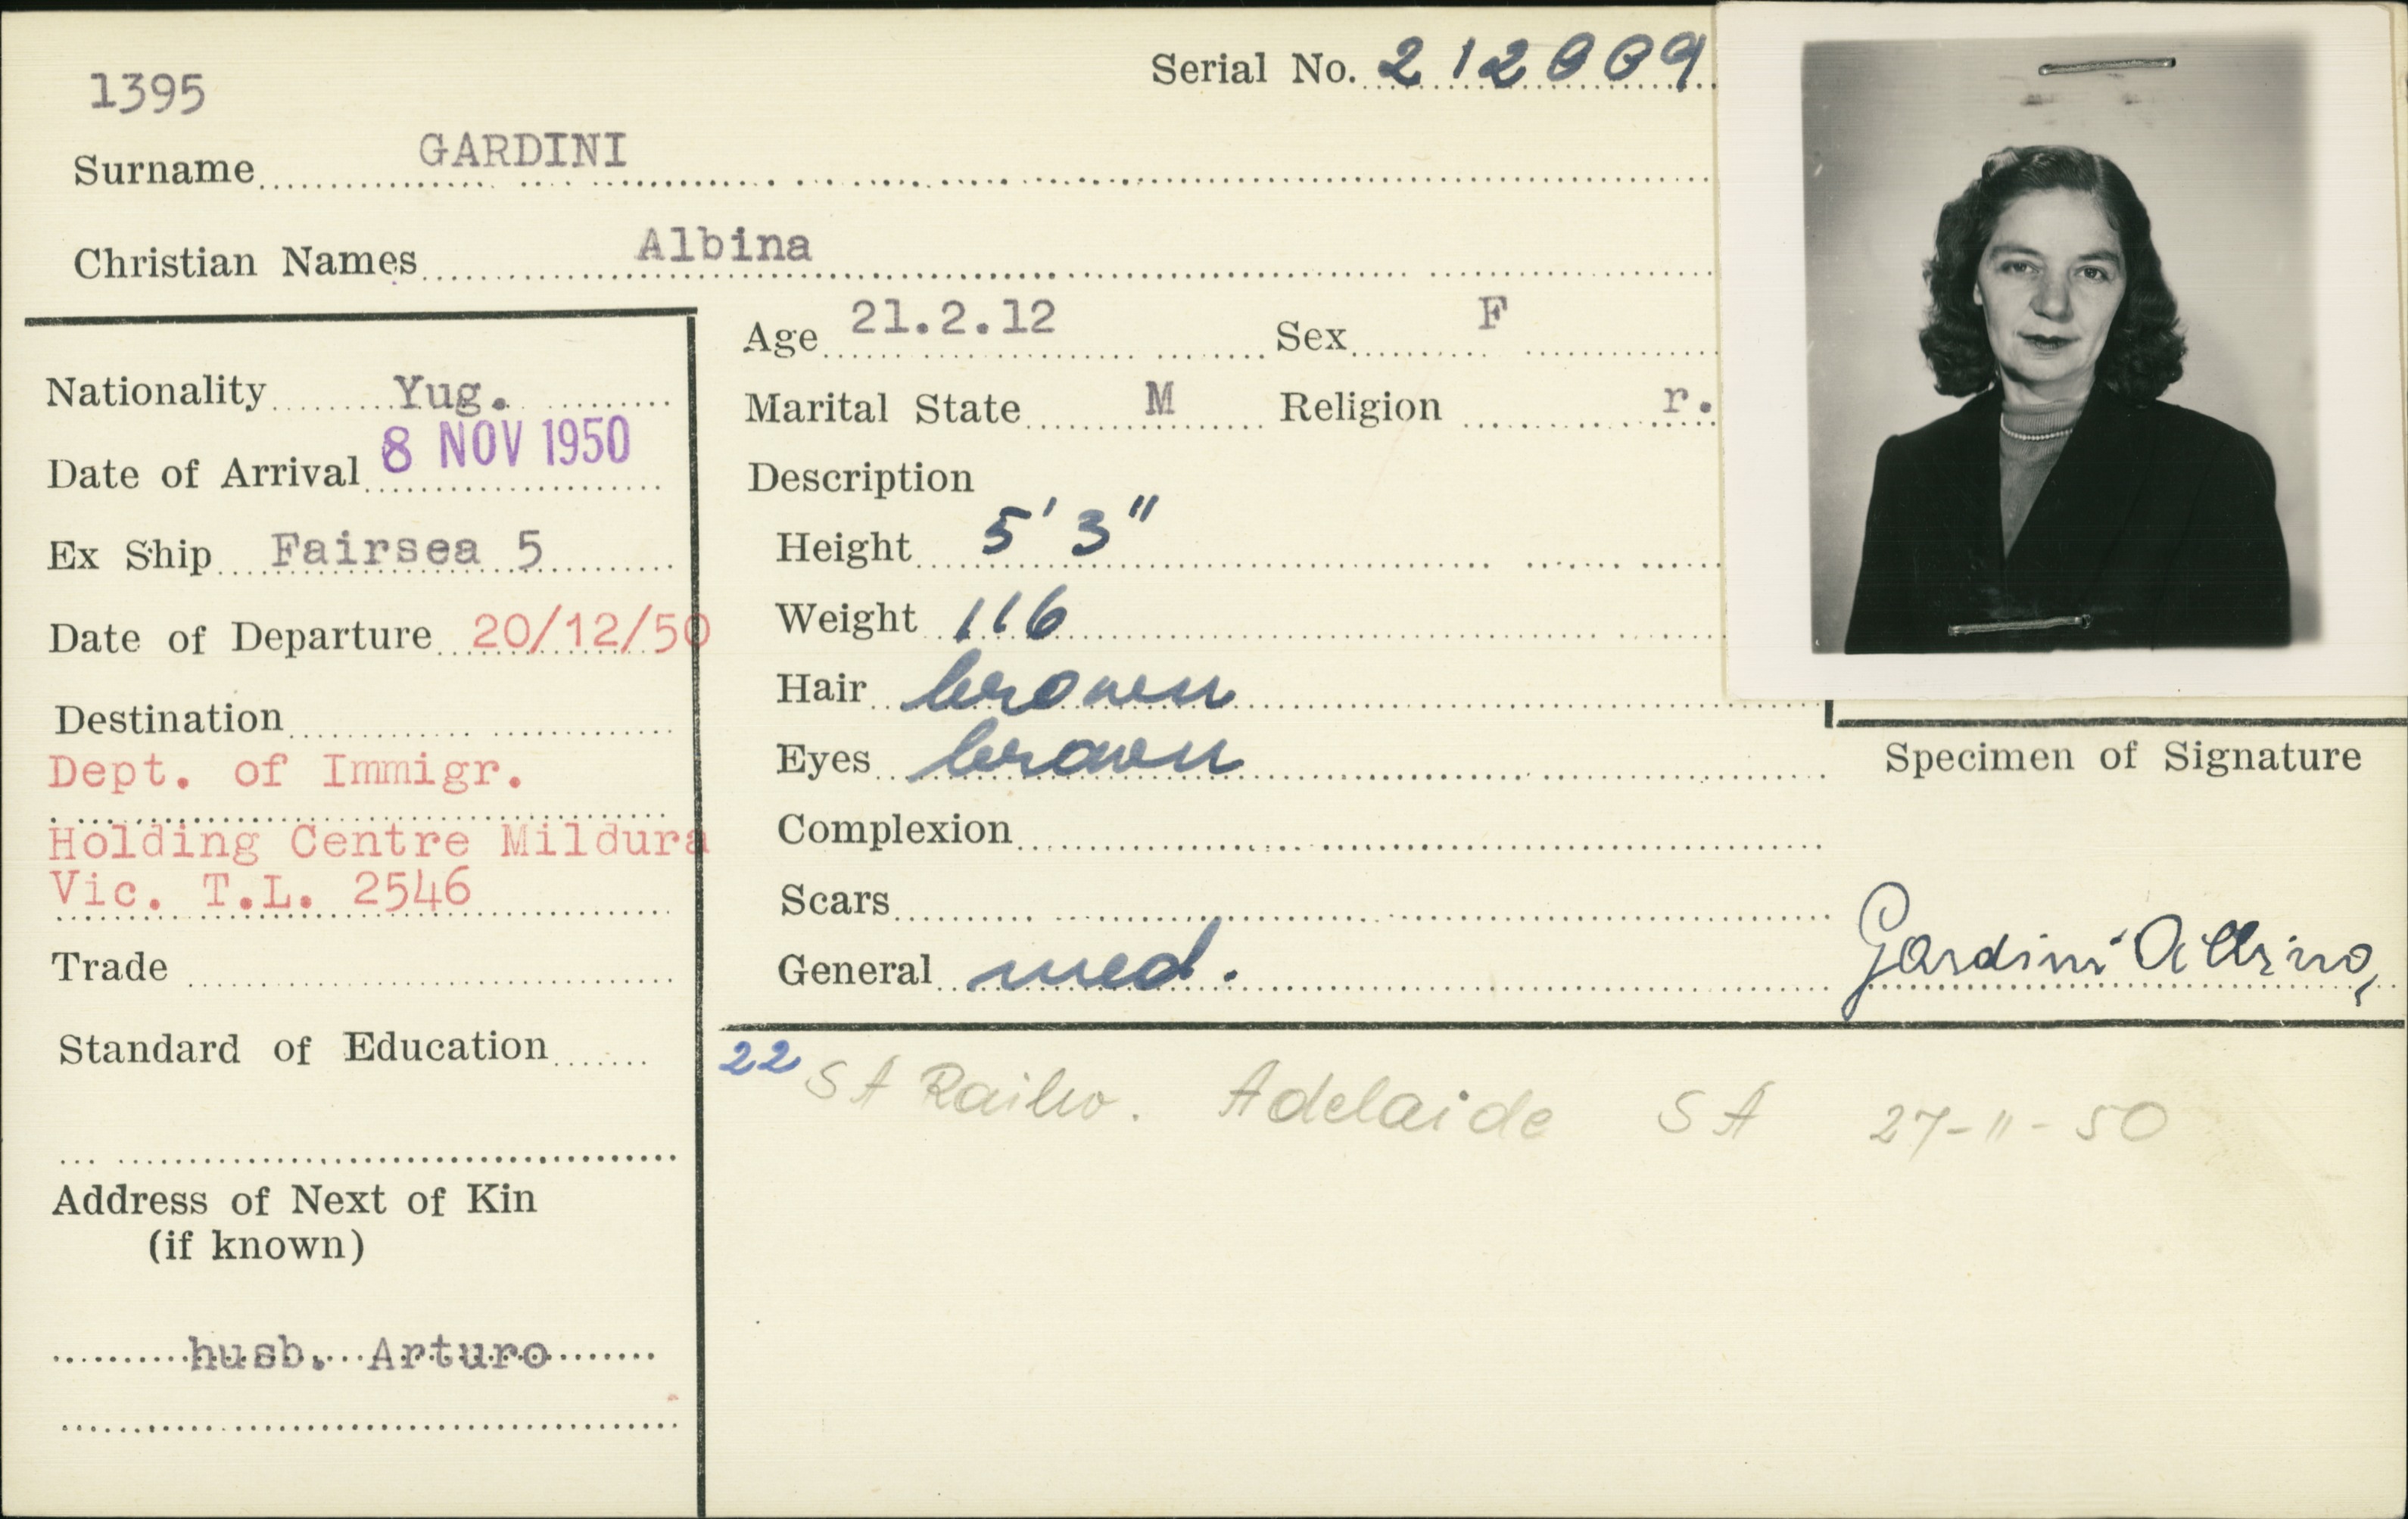 1395
Serial No. 212009
Surname GARDINI
Christian Names Albina
Nationality Yug.
Date of Arrival 8 NOV 1950
Ex Ship Fairsea 5
Date of Departure 20/12/50
Destination
Dept. of Immigr.
Holding Centre Mildura
Vic. T.L. 2546
Trade
Standard of Education
Address of Next of Kin
(if known)
husb. Arturo
Age 21.2.12 Sex F
Marital State M Religion r.
Description
Height 5' 3"
Weight 116
Hair brown
Eyes brown
Complexion
Scars
General med.
Specimen of Signature
Gardini Albina
22 SA Railw. Adelaide SA 27-11-50